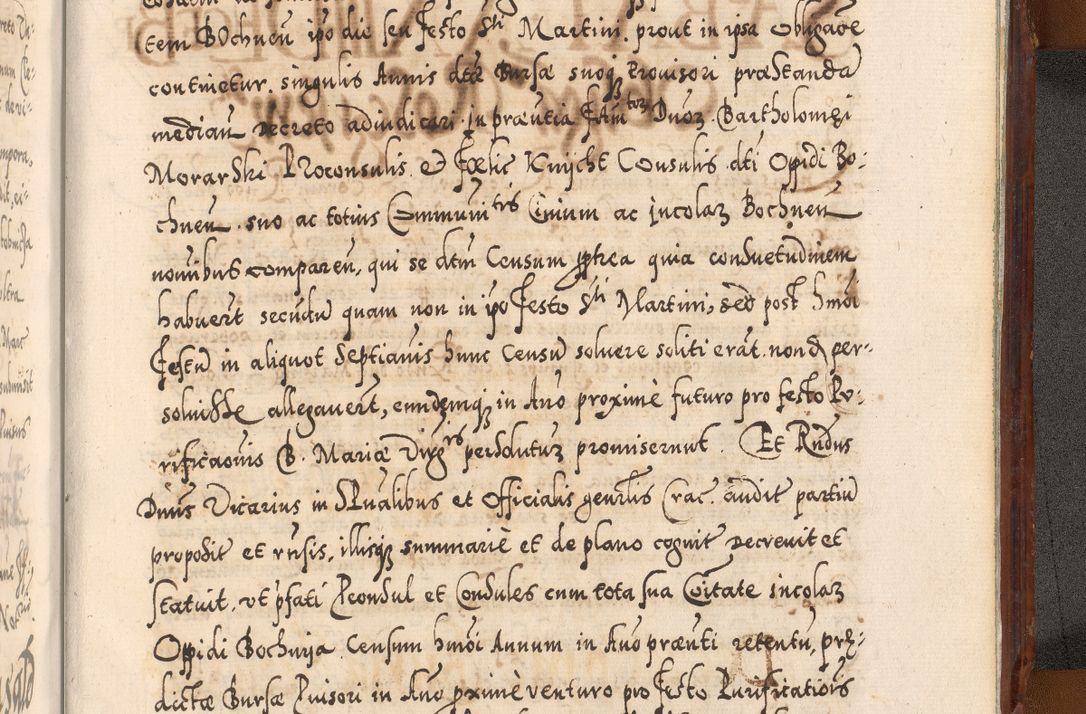 tem Bochnen̄ ipo die seu festo Sti Martini, prout in ipsa Obligaōe
continetur, singulis Annis dtæ Bursæ suoq; Prouisori præstanda
median̄ Decreto adiudicari. In præntia Famtorz Duoz Bartholomęi
Morarski Proconsulis & Fœlic Knijcht Consulis dti Oppidi Bo-
chnen̄ suo ac totius Communitis Ciuium ac Incolaz Bochnen̄
nomibus comparen̄, qui se dtm Censum ppterea quia consuetudinem
habuerīt secūdū quam non in ipo festo Sti Martini, sed post hmōi
Festū in aliquot septīanis hunc Censū soluere soliti erāt, nondū per-
soluisse allegauerīt, eundemq; in Año proximè futuro pro festo Pu-
rificaōnis B. Mariæ Virgis persoluturz promiserunt. Et Rndus
Dnus Vicarius in Spualibus et Officialis genrlis Crac. audit partiū
proposit et rnsis, illisq; summariè et de plano cognit Decreuit et
statuit, vt pfati Pconsul et Consules cum tota sua Cōitate incolaz
Oppidi Bochnija Censum hmōi Annum in Año prænti retentū, prę-
dictæ Bursæ Puisori in Año pximè venturo pro festo Purificationis